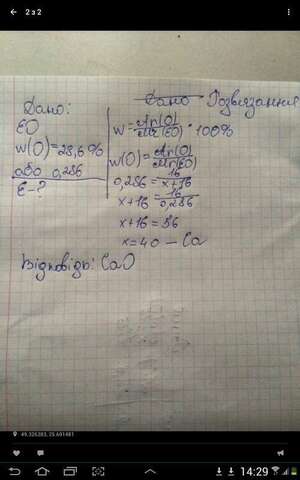 2 з 2
Дано:
Дано Розвязання
EO
w(O)=28,6%
або 0,286
E-?
w=Ar(O)/Mr(EO)·100%
w(O)=Ar(O)/Mr(EO)
0,286=16/x+16
x+16=16/0,286
x+16=56
x=40-Ca
Відповідь: CaO
49.326283, 25.691481
14:29